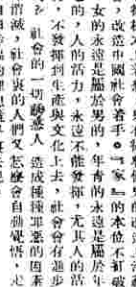 改造中國社會着乎。『家』的本位不打破
女的永遠是屬於男的，年青的永遠是屬於年
的。人的活力，永遠不能發揮，尤其人的活
不發揮到生產與文化上去，社會會有進步
？社會的一切醜惡人　造成種種罪惡的因素
消滅，社會裏的人們又怎麽會自動覺悟，走